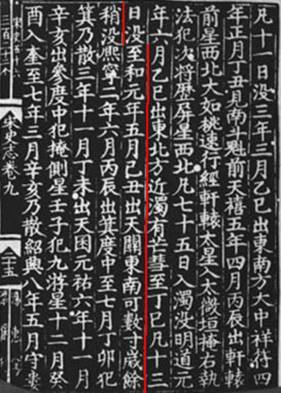 凡十一日没三年三月乙巳出東南方大中祥符四
年正月丁丑見南斗魁前天禧五年四月丙辰出軒轅
前星西北大如桃速行經軒轅太星入太微垣掩右執
法犯次將歷屏星西北凡七十五日入濁没明道元
年六月乙巳出東北方近濁有芒彗至丁巳凡十三
日没至和元年五月己丑出天關東南可數寸歲餘
稍没熙寧二年六月丙辰出箕度中至七月丁卯犯
箕乃散三年十一月丁未出天囷元祐六年十一月
辛亥出參度中犯掩側星壬子犯九斿星十二月癸
酉入奎至七年三月辛亥乃散紹興八年五月守婁
宋史志卷九
二五